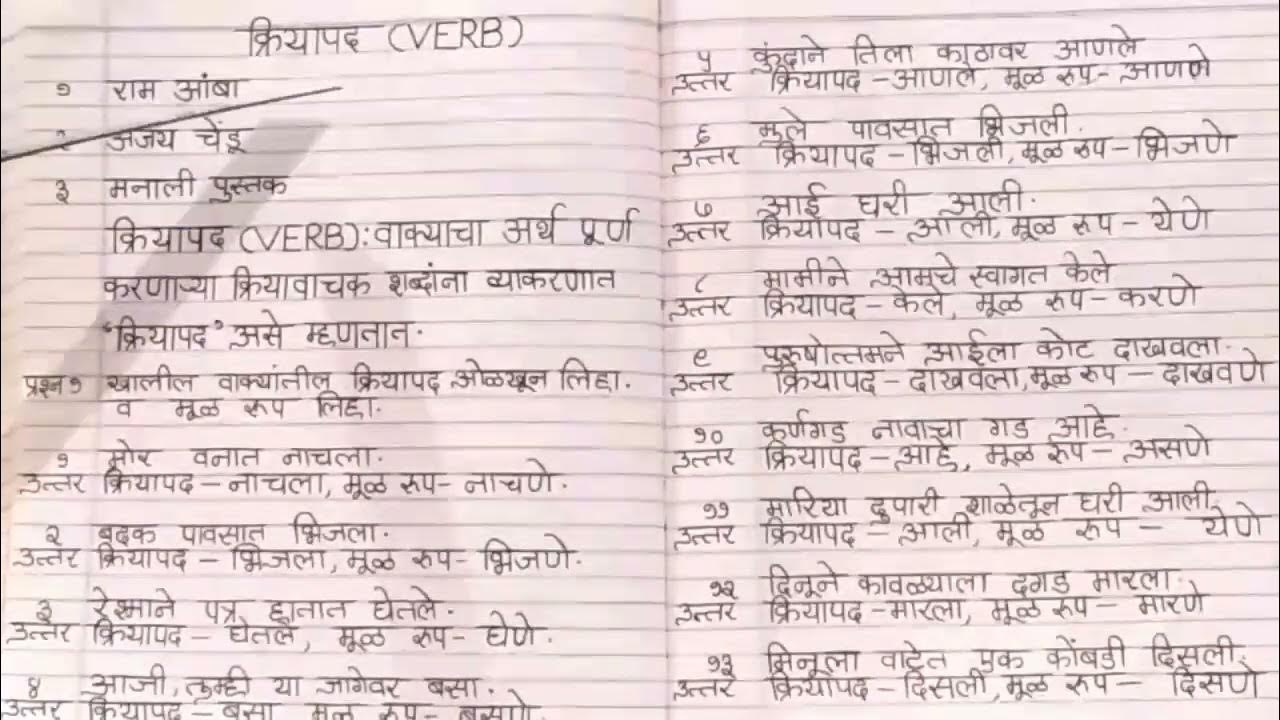 क्रियापद (VERB)
१ राम आंबा
२ अजय चेंडू
३ मनाली पुस्तक
क्रियापद (VERB): वाक्याचा अर्थ पूर्ण
करणाऱ्या क्रियावाचक शब्दांना व्याकरणात
"क्रियापद" असे म्हणतात.
प्रश्न १ खालील वाक्यांतील क्रियापद ओळखून लिहा.
व मूळ रूप लिहा.
१ मोर वनात नाचला.
उत्तर क्रियापद – नाचला, मूळ रूप- नाचणे.
२ बदक पावसात भिजला.
उत्तर क्रियापद – भिजला, मूळ रूप- भिजणे.
३ रेश्माने पत्र हातात घेतले.
उत्तर क्रियापद – घेतले, मूळ रूप- घेणे.
४ आजी, तुम्ही या जागेवर बसा.
उत्तर क्रियापद – बसा मूळ रूप- बसणे.
५ कुंदाने तिला काठावर आणले
उत्तर क्रियापद – आणले, मूळ रूप- आणणे
६ मुले पावसात भिजली.
उत्तर क्रियापद – भिजली, मूळ रूप – भिजणे
७ आई घरी आली.
उत्तर क्रियापद – आली, मूळ रूप – येणे
८ मामीने आमचे स्वागत केले
उत्तर क्रियापद – केले, मूळ रूप – करणे
९ पुरुषोत्तमने आईला कोट दाखवला.
उत्तर क्रियापद – दाखवला, मूळ रूप – दाखवणे
१० कर्णगड नावाचा गड आहे.
उत्तर क्रियापद – आहे, मूळ रूप – असणे
११ मारिया दुपारी शाळेतून घरी आली.
उत्तर क्रियापद – आली, मूळ रूप – येणे
१२ दिनूने कावळ्याला दगड मारला.
उत्तर क्रियापद – मारला, मूळ रूप – मारणे
१३ मिनूला वाटेत एक कोंबडी दिसली.
उत्तर क्रियापद – दिसली, मूळ रूप – दिसणे